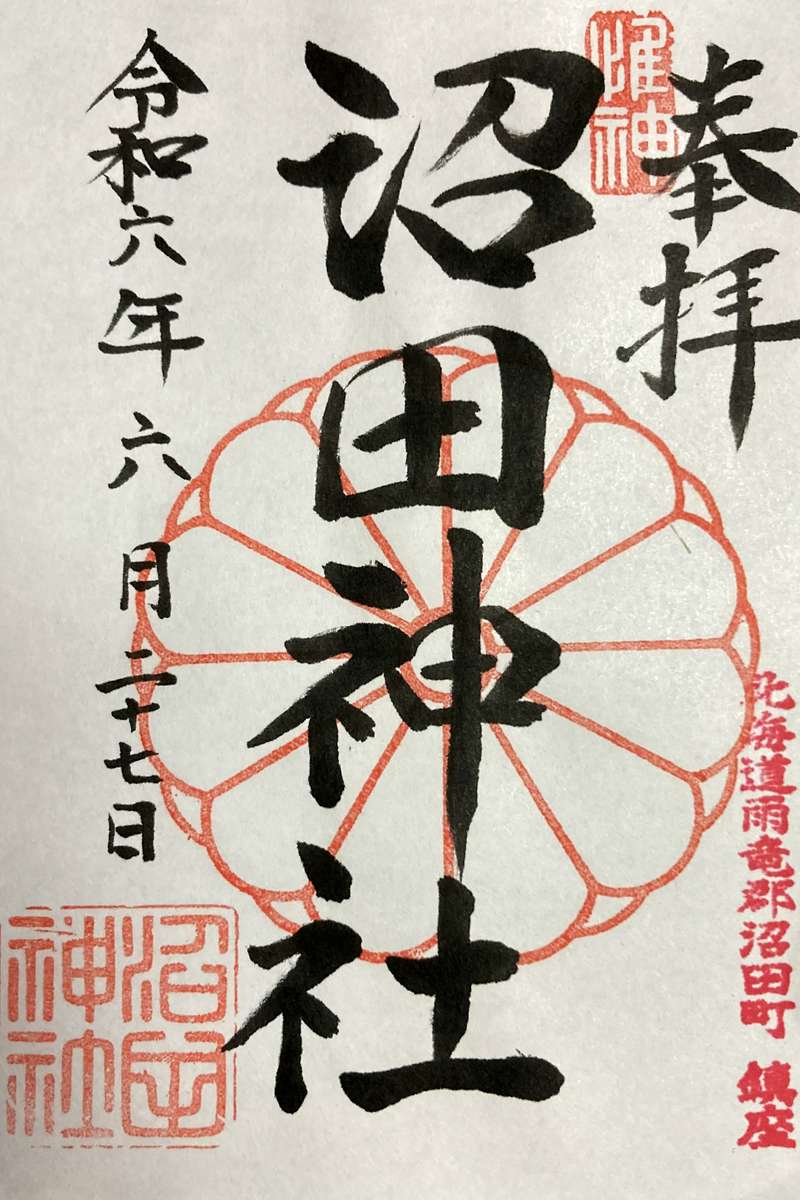 奉拝
惟神
北海道雨竜郡沼田町 鎮座
沼田神社
令和六年六月二十七日
沼田
神社